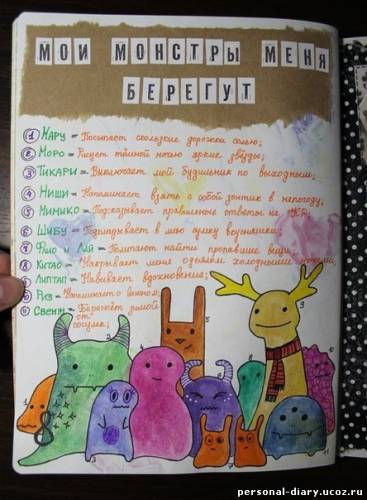 МОИ МОНСТРЫ МЕНЯ
БЕРЕГУТ
1 Мару - Посыпает скользкие дорожки солью;
2 Моро - Рисует тёмной ночью яркие звёзды;
3 Тикари - Выключает мой будильник по выходным;
4 Ниши - Напоминает взять с собой зонтик в непогоду;
5 Мимико - Подсказывает правильные ответы на
6 Шибу - Подкладывает в мою сумку вкусняшки;
7 и Лий - Помогают найти пропавшие вещи;
8 Китао - Накрывает меня одеялом холодными ночами;
9 Липтап - Навивает вдохновение;
10 Риз - Напоминает о важном;
11 Свенн - Бережёт зимой
от
сосулек;
1
2
3
4
5
6
7
8
9
10
11
personal-diary.ucoz.ru